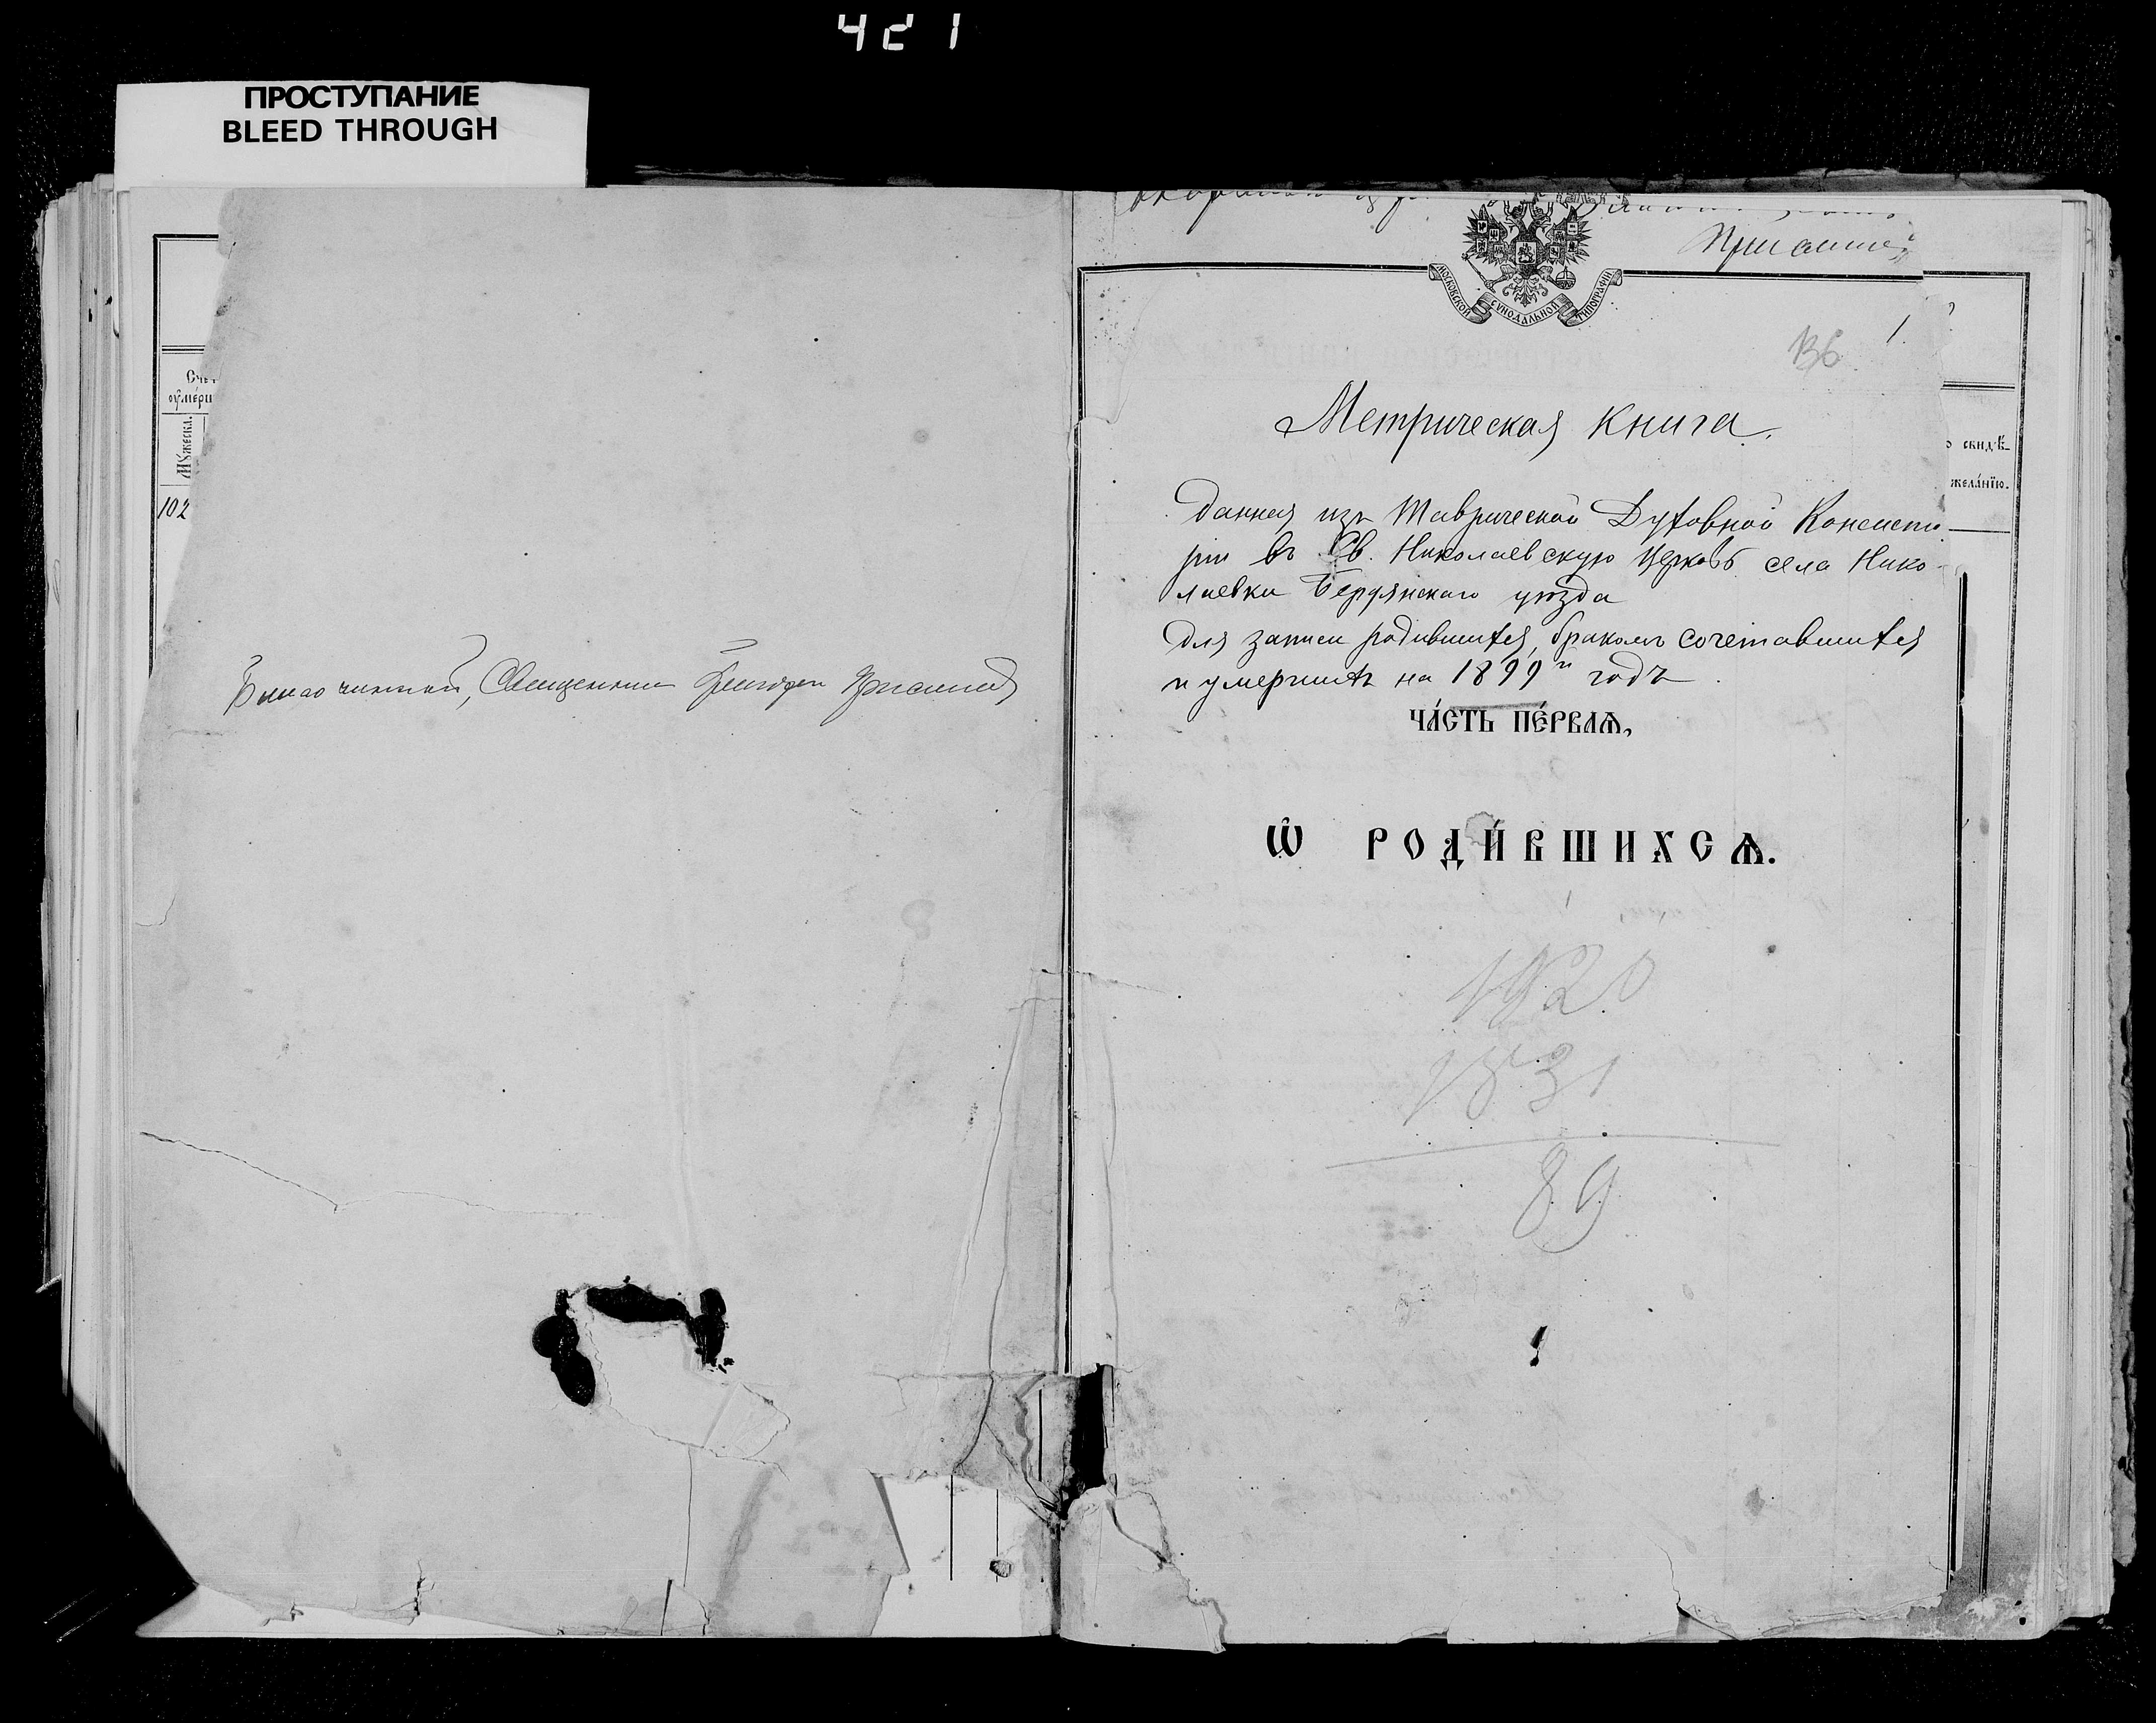 421
ПРОСТУПАНИЕ
BLEED THROUGH
Мужеска.
102
Священник
МОСКОВСКОЙ СѴНОДАЛЬНОЙ ТИПОГРАФІИ
136
1.
Метрическая книга.
Данная изъ Таврической Духовной Консисто
ріи въ Св. Николаевскую церковь села Нико-
лаевки Бердянскаго уѣзда
для записи родившихся, бракомъ сочетавшихся
и умершихъ на 1899й годъ
свидѣ-
желанїю.
ЧА́СТЬ ПЕ́РВАѦ,
Ѽ РОДИ́ВШИХСѦ.
1920
1831
89